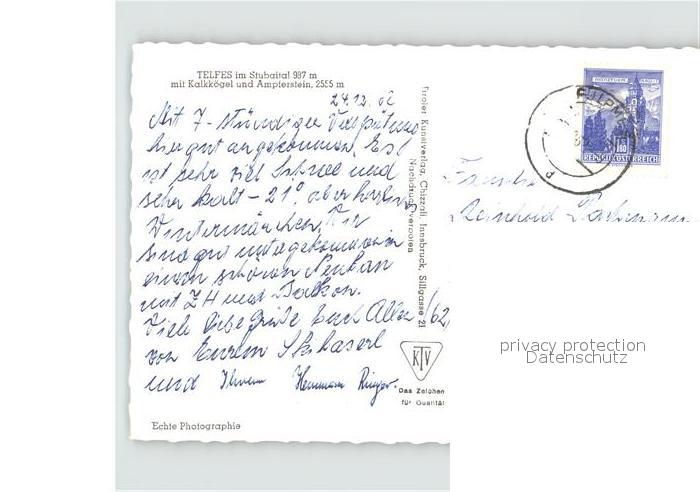 TELFES im Stubaital 987 m
mit Kalkkögel und Ampferstein, 2555 m
24.12.62
Mit 7-stündiger Verspätung
hier gut angekommen. Es
ist sehr viel Schnee und
sehr kalt - 21°, aber herrliches
Wintermärchen. Wir
sind gut untergekommen in
einem schönen Neubau
mit ZH und Balkon.
Viele liebe Grüße Euch Allen
von Eurem Skihaserl
und Ihrem Hermann
Tiroler Kunstverlag, Chizzali, Innsbruck, Sillgasse 21
Nachdruck verboten
/62
KTV
Das Zeichen
für Qualität
Echte Photographie
1.80
REPUBLIK ÖSTERREICH
FULPMES
Familie
Reinhold
privacy protection
Datenschutz